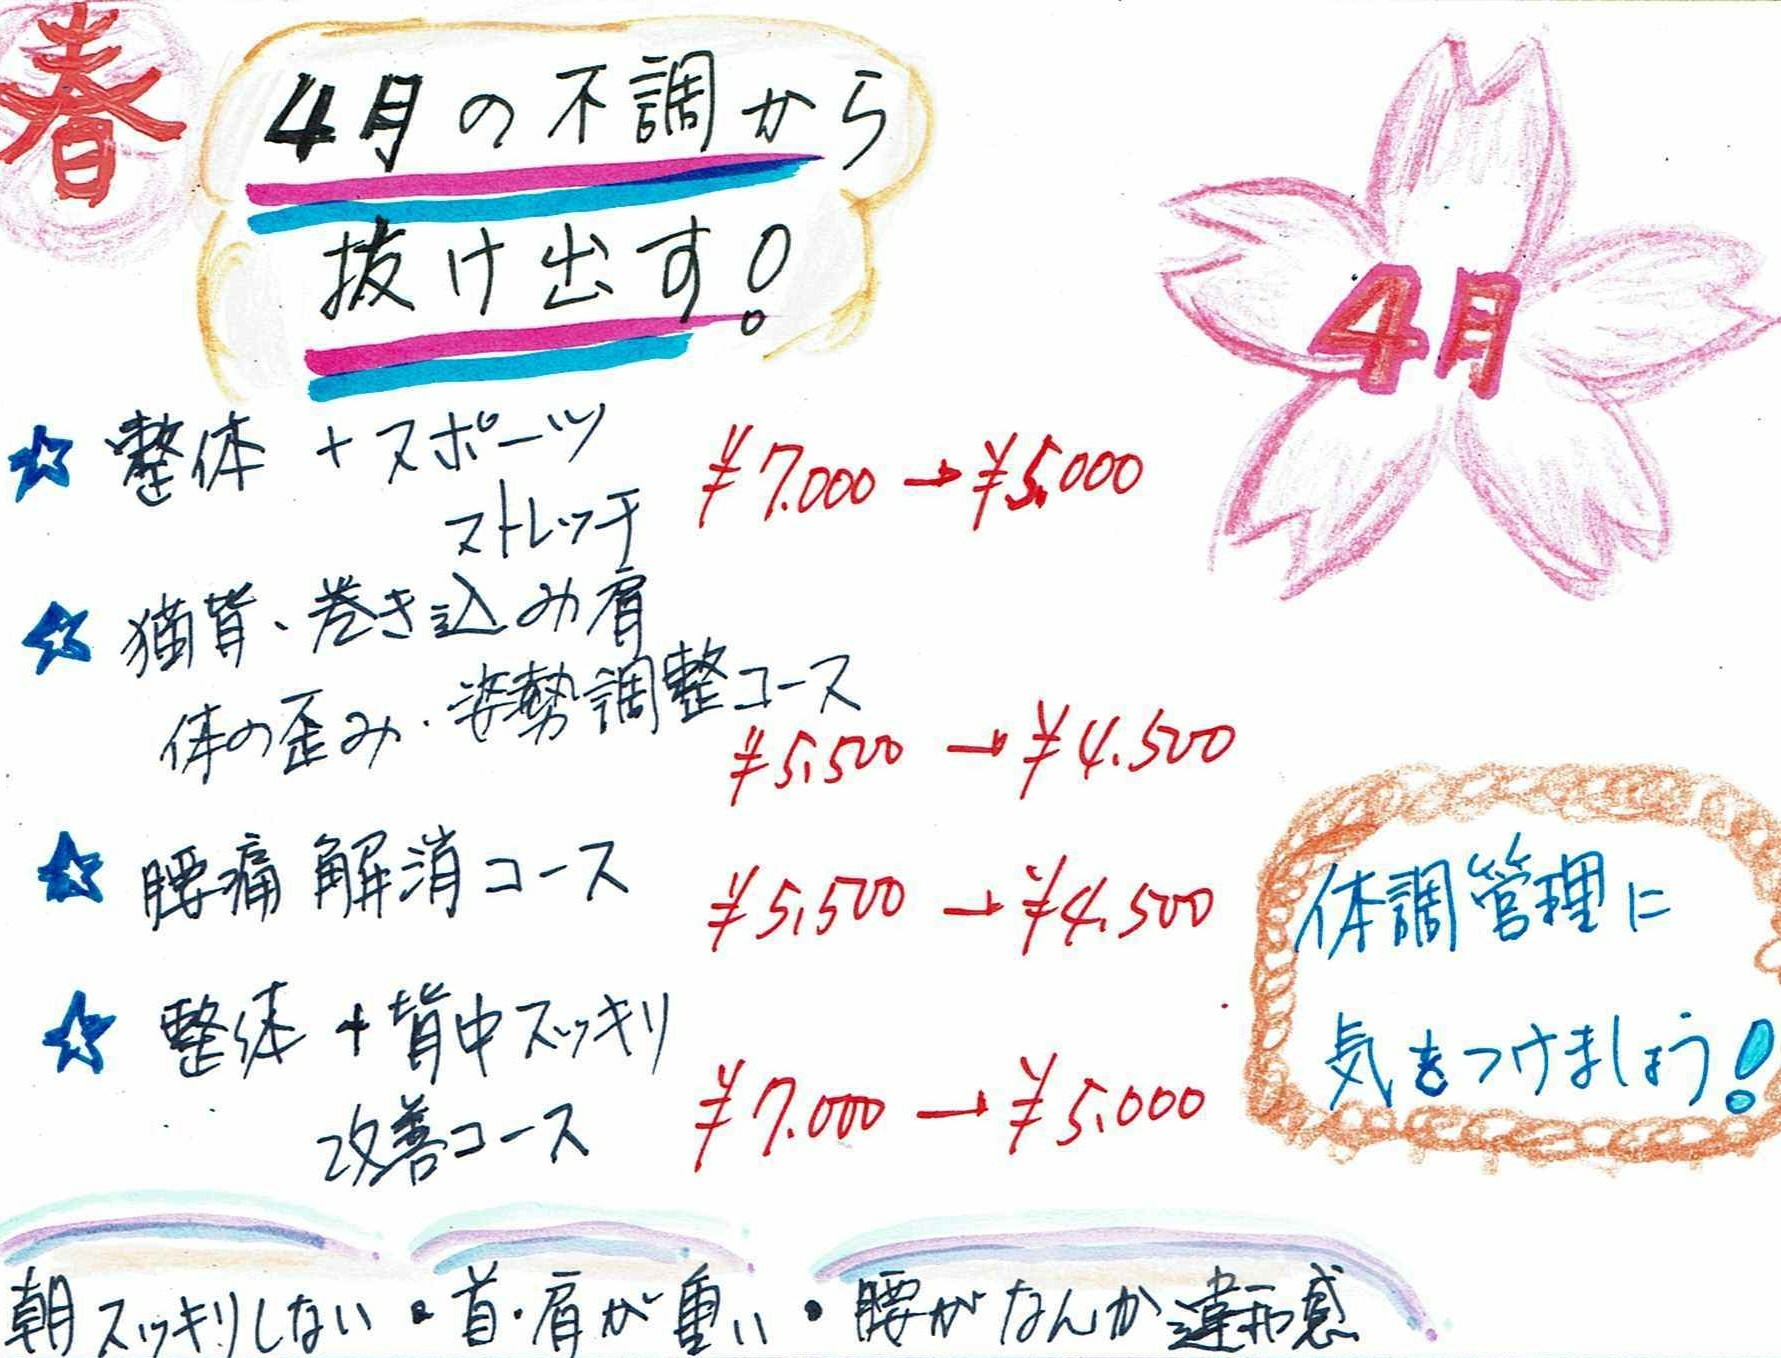 春
4月の不調から
抜け出す!
4月
☆ 整体 + スポーツ
ストレッチ
¥7.000 → ¥5.000
☆ 猫背、巻き込み肩
体の歪み・姿勢調整コース
¥5,500 → ¥4.500
☆ 腰痛解消コース
¥5,500 → ¥4.500
☆ 整体 + 背中スッキリ
改善コース
¥7.000 → ¥5.000
体調管理に
気をつけましょう!
朝スッキリしない・首・肩が重い・腰がなんか違和感